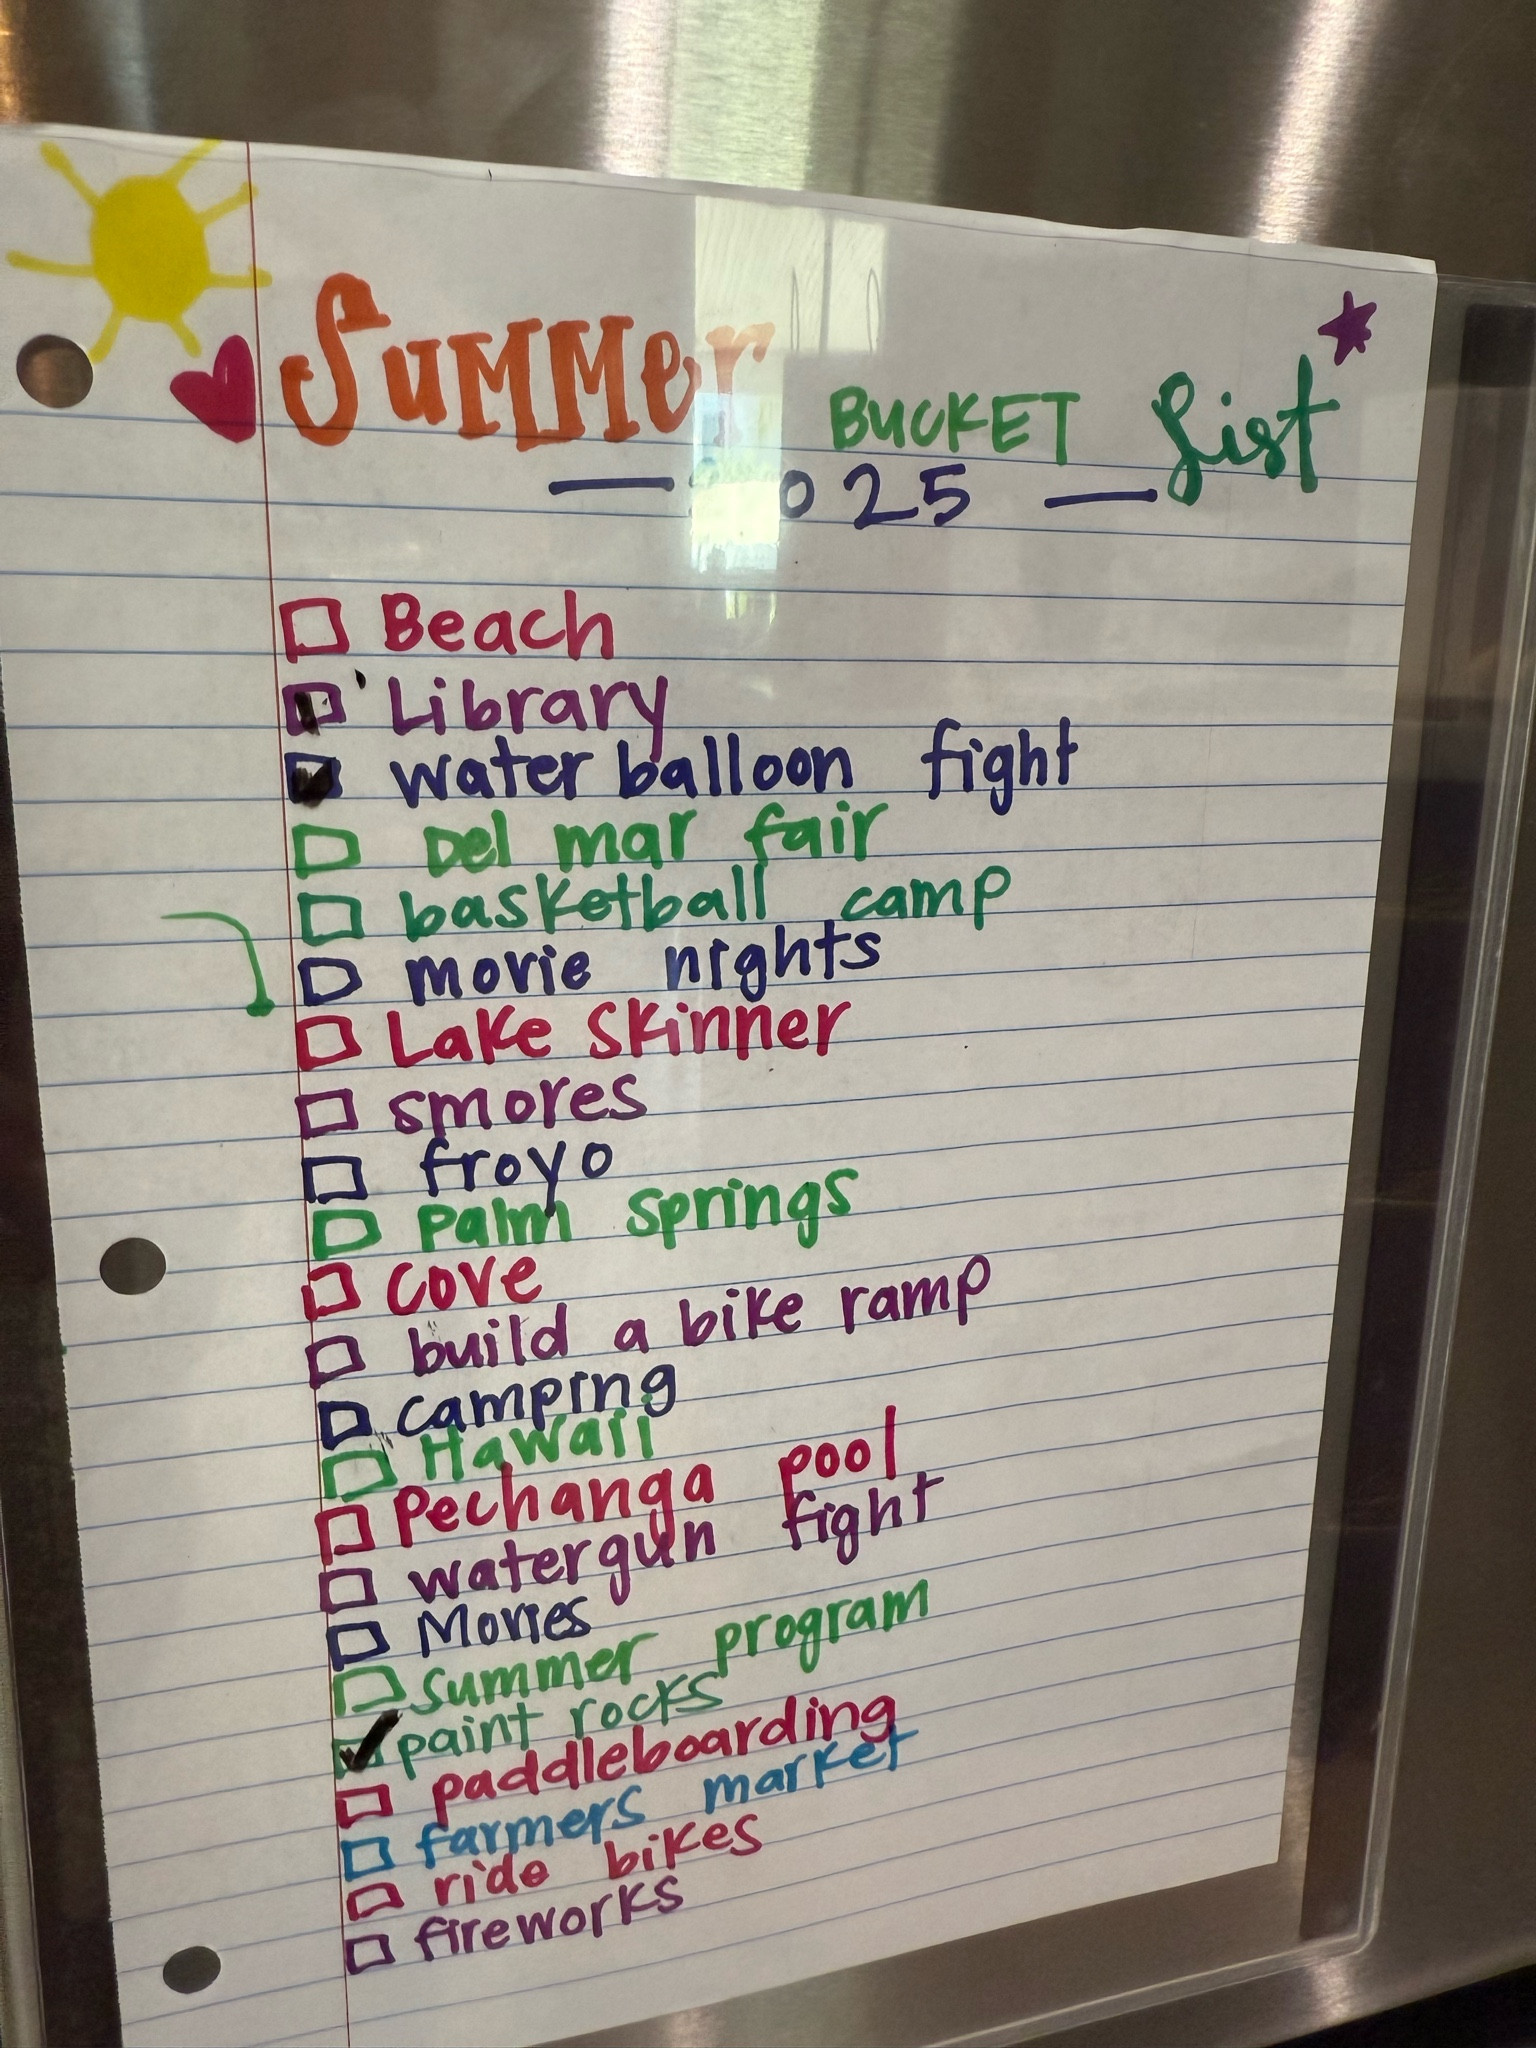 Summer BUCKET List
— 2025 —
Beach
Library
water balloon fight
Del mar fair
basketball camp
movie nights
Lake Skinner
smores
froyo
palm springs
cove
build a bike ramp
camping
Hawaii
Pechanga pool
watergun fight
Movies
summer program
paint rocks
paddleboarding
farmers market
ride bikes
fireworks